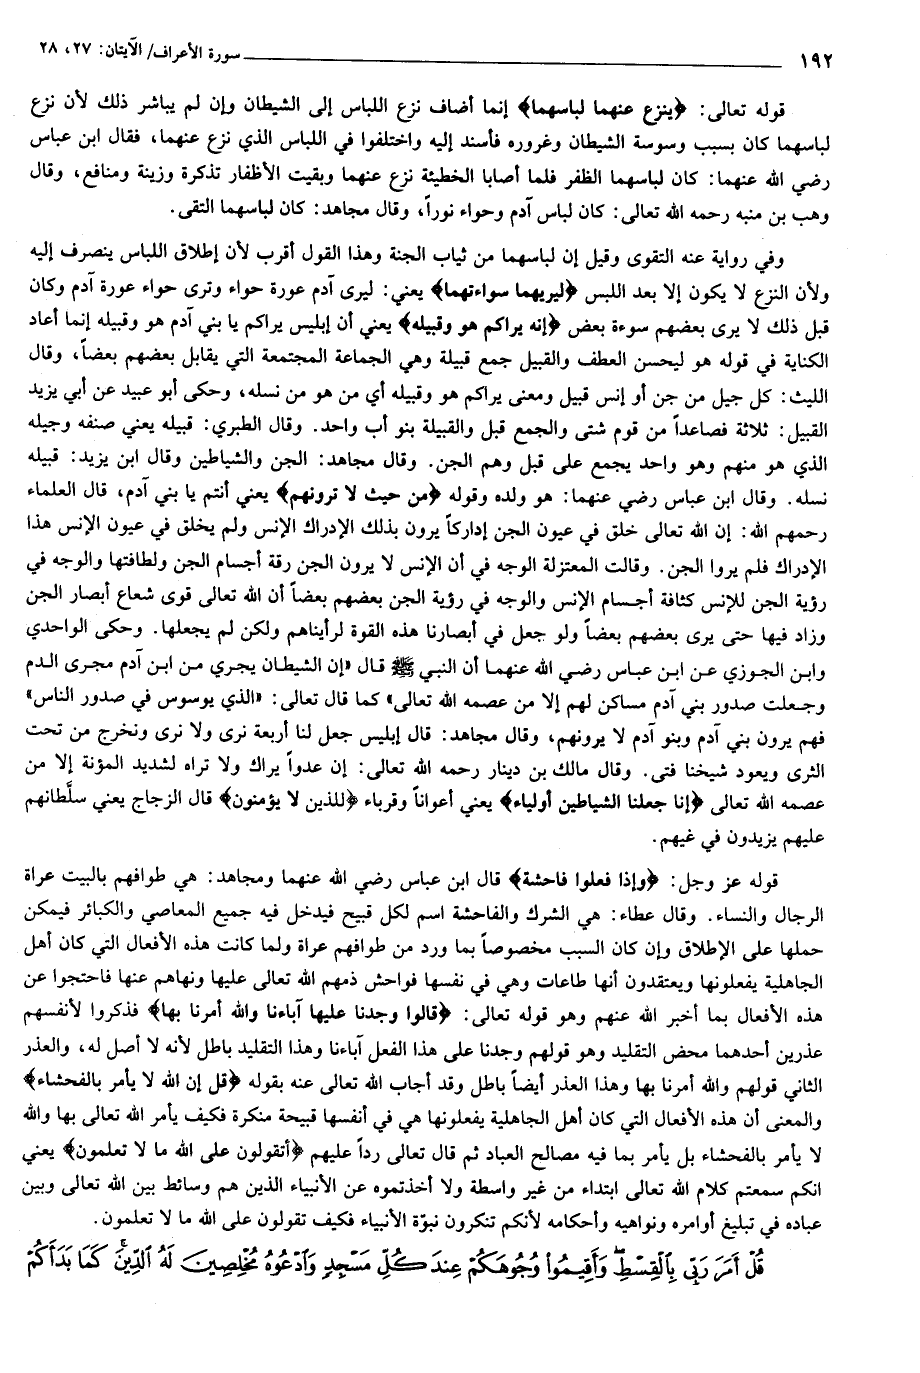 ١٩٢ سورة الأعراف/ الآيتان: ٢٧، ٢٨
قوله تعالى: ﴿ينزع عنهما لباسهما﴾ إنما أضاف نزع اللباس إلى الشيطان وإن لم يباشر ذلك لأن نزع
لباسهما كان بسبب وسوسة الشيطان وغروره فأسند إليه واختلفوا في اللباس الذي نزع عنهما، فقال ابن عباس
رضي الله عنهما: كان لباسهما الظفر فلما أصابا الخطيئة نزع عنهما وبقيت الأظفار تذكرة وزينة ومنافع، وقال
وهب بن منبه رحمه الله تعالى: كان لباس آدم وحواء نوراً، وقال مجاهد: كان لباسهما التقى.
وفي رواية عنه التقوى وقيل إن لباسهما من ثياب الجنة وهذا القول أقرب لأن إطلاق اللباس ينصرف إليه
ولأن النزع لا يكون إلا بعد اللبس ﴿ليريهما سواءتهما﴾ يعني: ليرى آدم عورة حواء وترى حواء عورة آدم وكان
قبل ذلك لا يرى بعضهم سوءة بعض ﴿إنه يراكم هو وقبيله﴾ يعني أن إبليس يراكم يا بني آدم هو وقبيله إنما أعاد
الكناية في قوله هو ليحسن العطف والقبيل جمع قبيلة وهي الجماعة المجتمعة التي يقابل بعضهم بعضاً، وقال
الليث: كل جيل من جن أو إنس قبيل ومعنى يراكم هو وقبيله أي من هو من نسله، وحكى أبو عبيد عن أبي يزيد
القبيل: ثلاثة فصاعداً من قوم شتى والجمع قبل والقبيلة بنو أب واحد. وقال الطبري: قبيله يعني صنفه وجيله
الذي هو منهم وهو واحد يجمع على قبل وهم الجن. وقال مجاهد: الجن والشياطين وقال ابن يزيد: قبيله
نسله. وقال ابن عباس رضي عنهما: هو ولده وقوله ﴿من حيث لا ترونهم﴾ يعني أنتم يا بني آدم، قال العلماء
رحمهم الله: إن الله تعالى خلق في عيون الجن إداركاً يرون بذلك الإدراك الإنس ولم يخلق في عيون الإنس هذا
الإدراك فلم يروا الجن. وقالت المعتزلة الوجه في أن الإنس لا يرون الجن رقة أجسام الجن ولطافتها والوجه في
رؤية الجن للإنس كثافة أجسام الإنس والوجه في رؤية الجن بعضهم بعضاً أن الله تعالى قوى شعاع أبصار الجن
وزاد فيها حتى يرى بعضهم بعضاً ولو جعل في أبصارنا هذه القوة لرأيناهم ولكن لم يجعلها. وحكى الواحدي
وابن الجوزي عن ابن عباس رضي الله عنهما أن النبي ﷺ قال «إن الشيطان يجري من ابن آدم مجرى الدم
وجعلت صدور بني آدم مساكن لهم إلا من عصمه الله تعالى» كما قال تعالى: «الذي يوسوس في صدور الناس»
فهم يرون بني آدم وبنو آدم لا يرونهم، وقال مجاهد: قال إبليس جعل لنا أربعة نرى ولا نرى ونخرج من تحت
الثرى ويعود شيخنا فتى. وقال مالك بن دينار رحمه الله تعالى: إن عدواً يراك ولا تراه لشديد المؤنة إلا من
عصمه الله تعالى ﴿إنا جعلنا الشياطين أولياء﴾ يعني أعواناً وقرباء ﴿للذين لا يؤمنون﴾ قال الزجاج يعني سلطانهم
عليهم يزيدون في غيهم.
قوله عز وجل: ﴿وإذا فعلوا فاحشة﴾ قال ابن عباس رضي الله عنهما ومجاهد: هي طوافهم بالبيت عراة
الرجال والنساء. وقال عطاء: هي الشرك والفاحشة اسم لكل قبيح فيدخل فيه جميع المعاصي والكبائر فيمكن
حملها على الإطلاق وإن كان السبب مخصوصاً بما ورد من طوافهم عراة ولما كانت هذه الأفعال التي كان أهل
الجاهلية يفعلونها ويعتقدون أنها طاعات وهي في نفسها فواحش ذمهم الله تعالى عليها ونهاهم عنها فاحتجوا عن
هذه الأفعال بما أخبر الله عنهم وهو قوله تعالى: ﴿قالوا وجدنا عليها آباءنا والله أمرنا بها﴾ فذكروا لأنفسهم
عذرين أحدهما محض التقليد وهو قولهم وجدنا على هذا الفعل آباءنا وهذا التقليد باطل لأنه لا أصل له، والعذر
الثاني قولهم والله أمرنا بها وهذا العذر أيضاً باطل وقد أجاب الله تعالى عنه بقوله ﴿قل إن الله لا يأمر بالفحشاء﴾
والمعنى أن هذه الأفعال التي كان أهل الجاهلية يفعلونها هي في أنفسها قبيحة منكرة فكيف يأمر الله تعالى بها والله
لا يأمر بالفحشاء بل يأمر بما فيه مصالح العباد ثم قال تعالى رداً عليهم ﴿أتقولون على الله ما لا تعلمون﴾ يعني
انكم سمعتم كلام الله تعالى ابتداء من غير واسطة ولا أخذتموه عن الأنبياء الذين هم وسائط بين الله تعالى وبين
عباده في تبليغ أوامره ونواهيه وأحكامه لأنكم تنكرون نبوّة الأنبياء فكيف تقولون على الله ما لا تعلمون.
قُلْ أَمَرَ رَبِّي بِٱلْقِسْطِ وَأَقِيمُوا۟ وُجُوهَكُمْ عِندَ كُلِّ مَسْجِدٍ وَٱدْعُوهُ مُخْلِصِينَ لَهُ ٱلدِّينَۚ كَمَا بَدَأَكُمْ